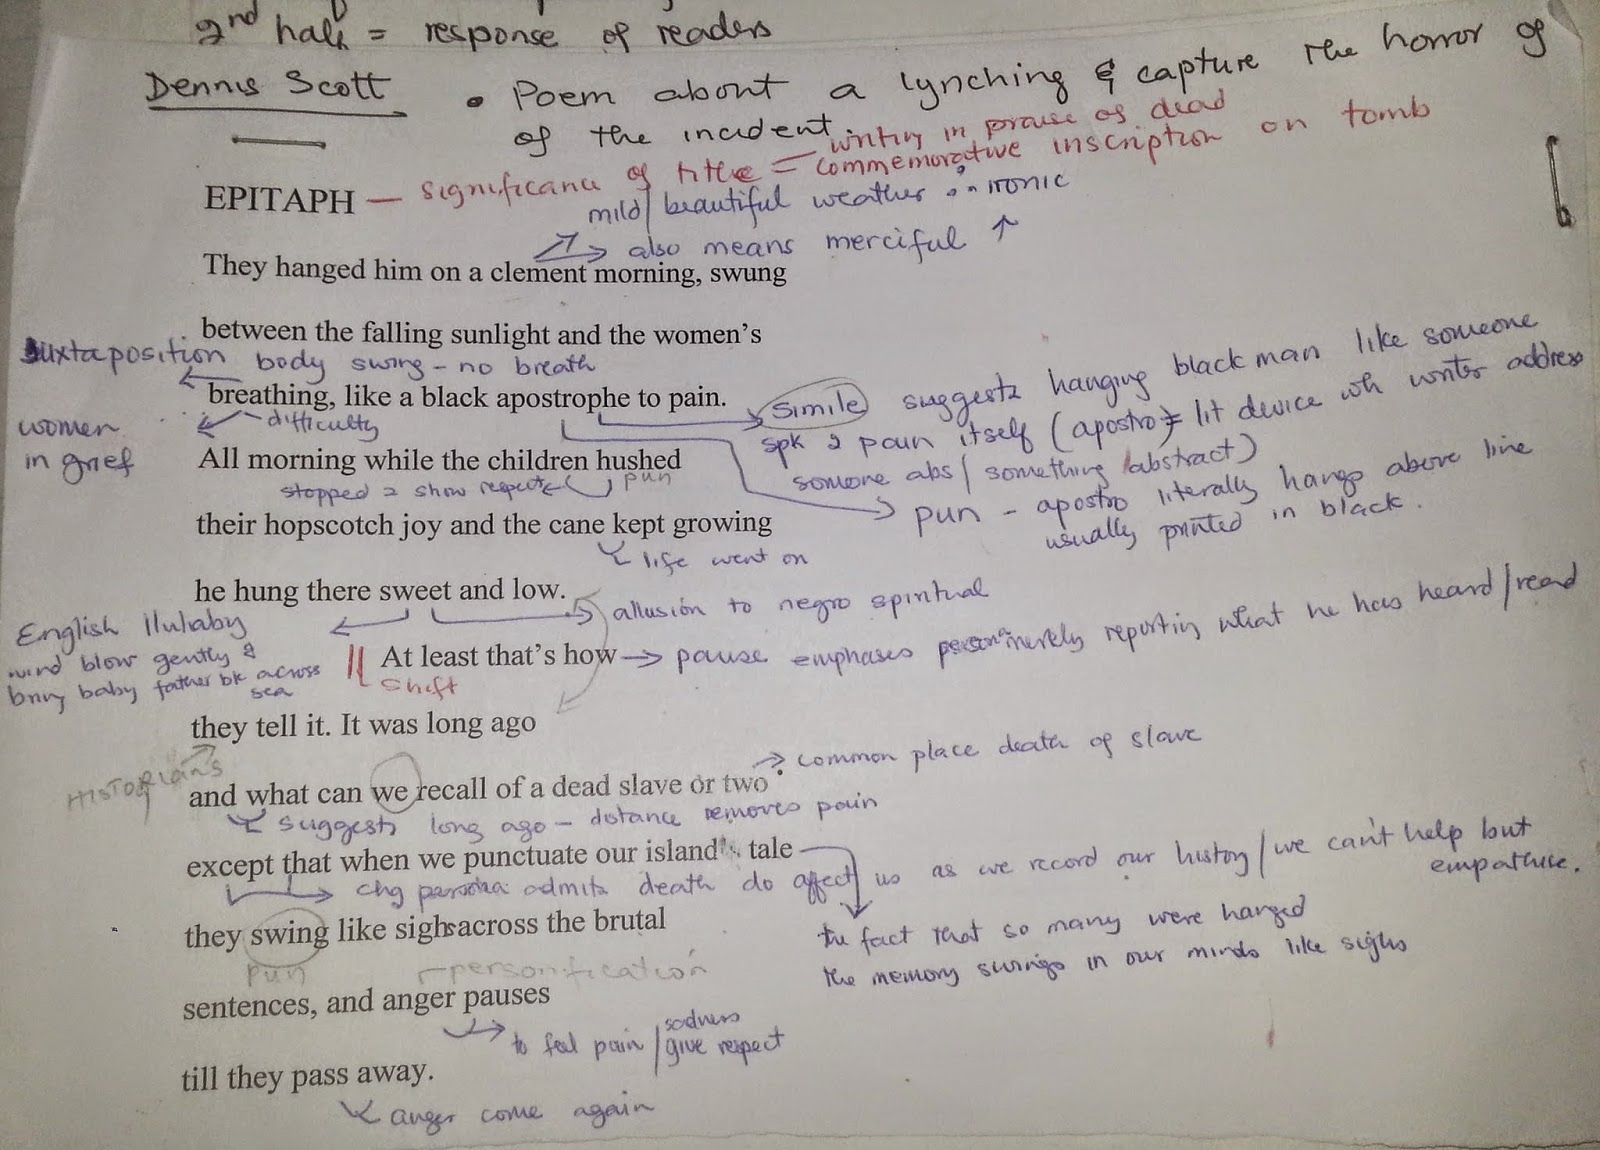 2nd half = response of readers
Dennis Scott
• Poem about a lynching & capture the horror of
of the incident.
writing in praise of dead
EPITAPH — significance of title = commemorative inscription on tomb
mild/beautiful weather ∴ ironic
also means merciful ↑
They hanged him on a clement morning, swung
between the falling sunlight and the women's
Juxtaposition body swing - no breath
breathing, like a black apostrophe to pain.
simile suggests hanging black man like someone
spk 2 pain itself (apostro = lit device wh writer address
someone abs/something abstract)
women
in grief
difficulty
All morning while the children hushed
stopped 2 show respect
pun
pun - apostro literally hangs above line
usually printed in black.
their hopscotch joy and the cane kept growing
life went on
he hung there sweet and low.
allusion to negro spiritual
English llulaby
wind blow gently &
bring baby father bk across
sea
At least that's how → pause emphases persona merely reporting what he has heard/read
shift
they tell it. It was long ago
HISTORIANS
common place death of slave
and what can we recall of a dead slave or two
suggests long ago - distance removes pain
except that when we punctuate our island's tale
chg persona admits death do affect us as we record our history/we can't help but
empathise.
they swing like sighs across the brutal
the fact that so many were hanged
the memory swings in our minds like sighs
pun
personification
sentences, and anger pauses
to feel pain/sadness
give respect
till they pass away.
anger come again